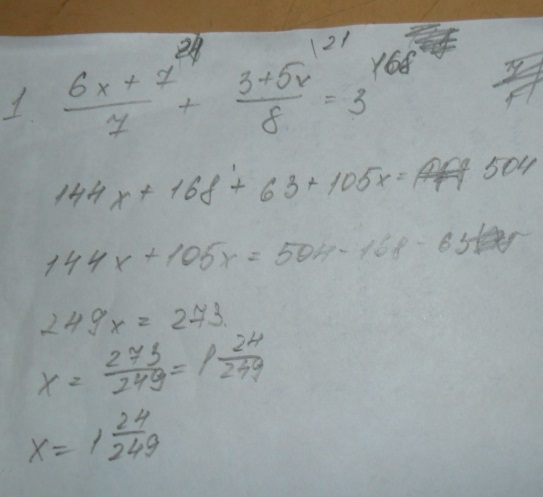 1 (6x + 7)/7 \24 + (3+5x)/8 \21 = 3 \168
144x + 168 + 63 + 105x = 504
144x + 105x = 504 - 168 - 63
249x = 273.
x = 273/249 = 1 24/249
x = 1 24/249